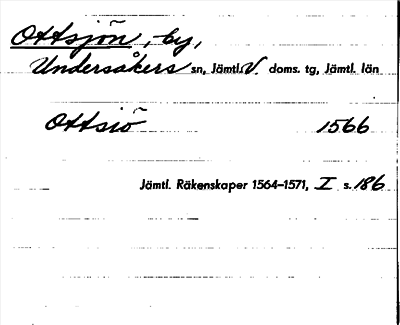 Ottsjön, by,
Undersåkers sn, Jämtl. V. doms. tg, Jämtl. län
Ottsiö 1566
Jämtl. Räkenskaper 1564–1571, I s. 186